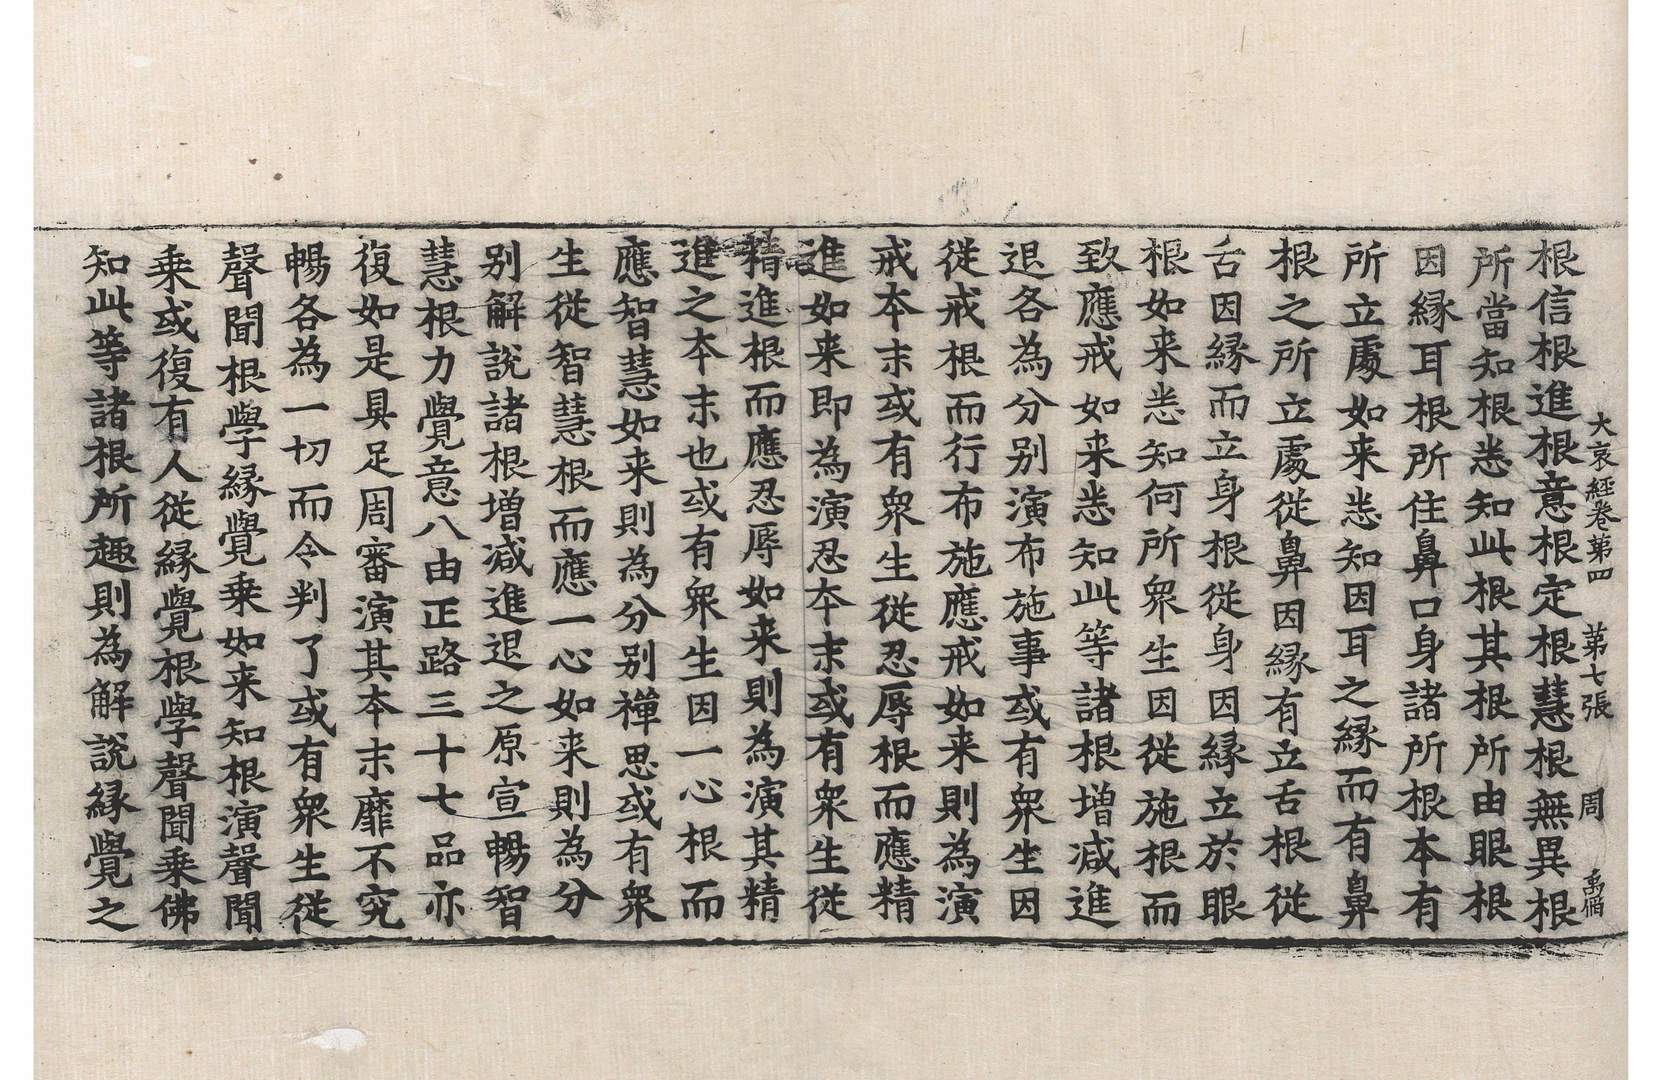 大哀經卷第四　第七張　周
根信根進根意根定根慧根無異根
所當知根悉知此根其根所由眼根
因縁耳根所住鼻口身諸所根本有
所立處如来悉知因耳之縁而有鼻
根之所立處從鼻因縁有立舌根從
舌因縁而立身根從身因縁立於眼
根如来悉知何所衆生因從施根而
致應戒如来悉知此等諸根增减進
退各為分别演布施事或有衆生因
從戒根而行布施應戒如来則為演
戒本末或有衆生從忍辱根而應精
進如来即為演忍本末或有衆生從
精進根而應忍辱如来則為演其精
進之本末也或有衆生因一心根而
應智慧如来則為分别禪思或有衆
生從智慧根而應一心如来則為分
别解說諸根增减進退之原宣暢智
慧根力覺意八由正路三十七品亦
復如是具足周審演其本末靡不究
暢各為一切而令判了或有衆生從
聲聞根學縁覺乗如来知根演聲聞
乗或復有人從縁覺根學聲聞乗佛
知此等諸根所趣則為解說縁覺之